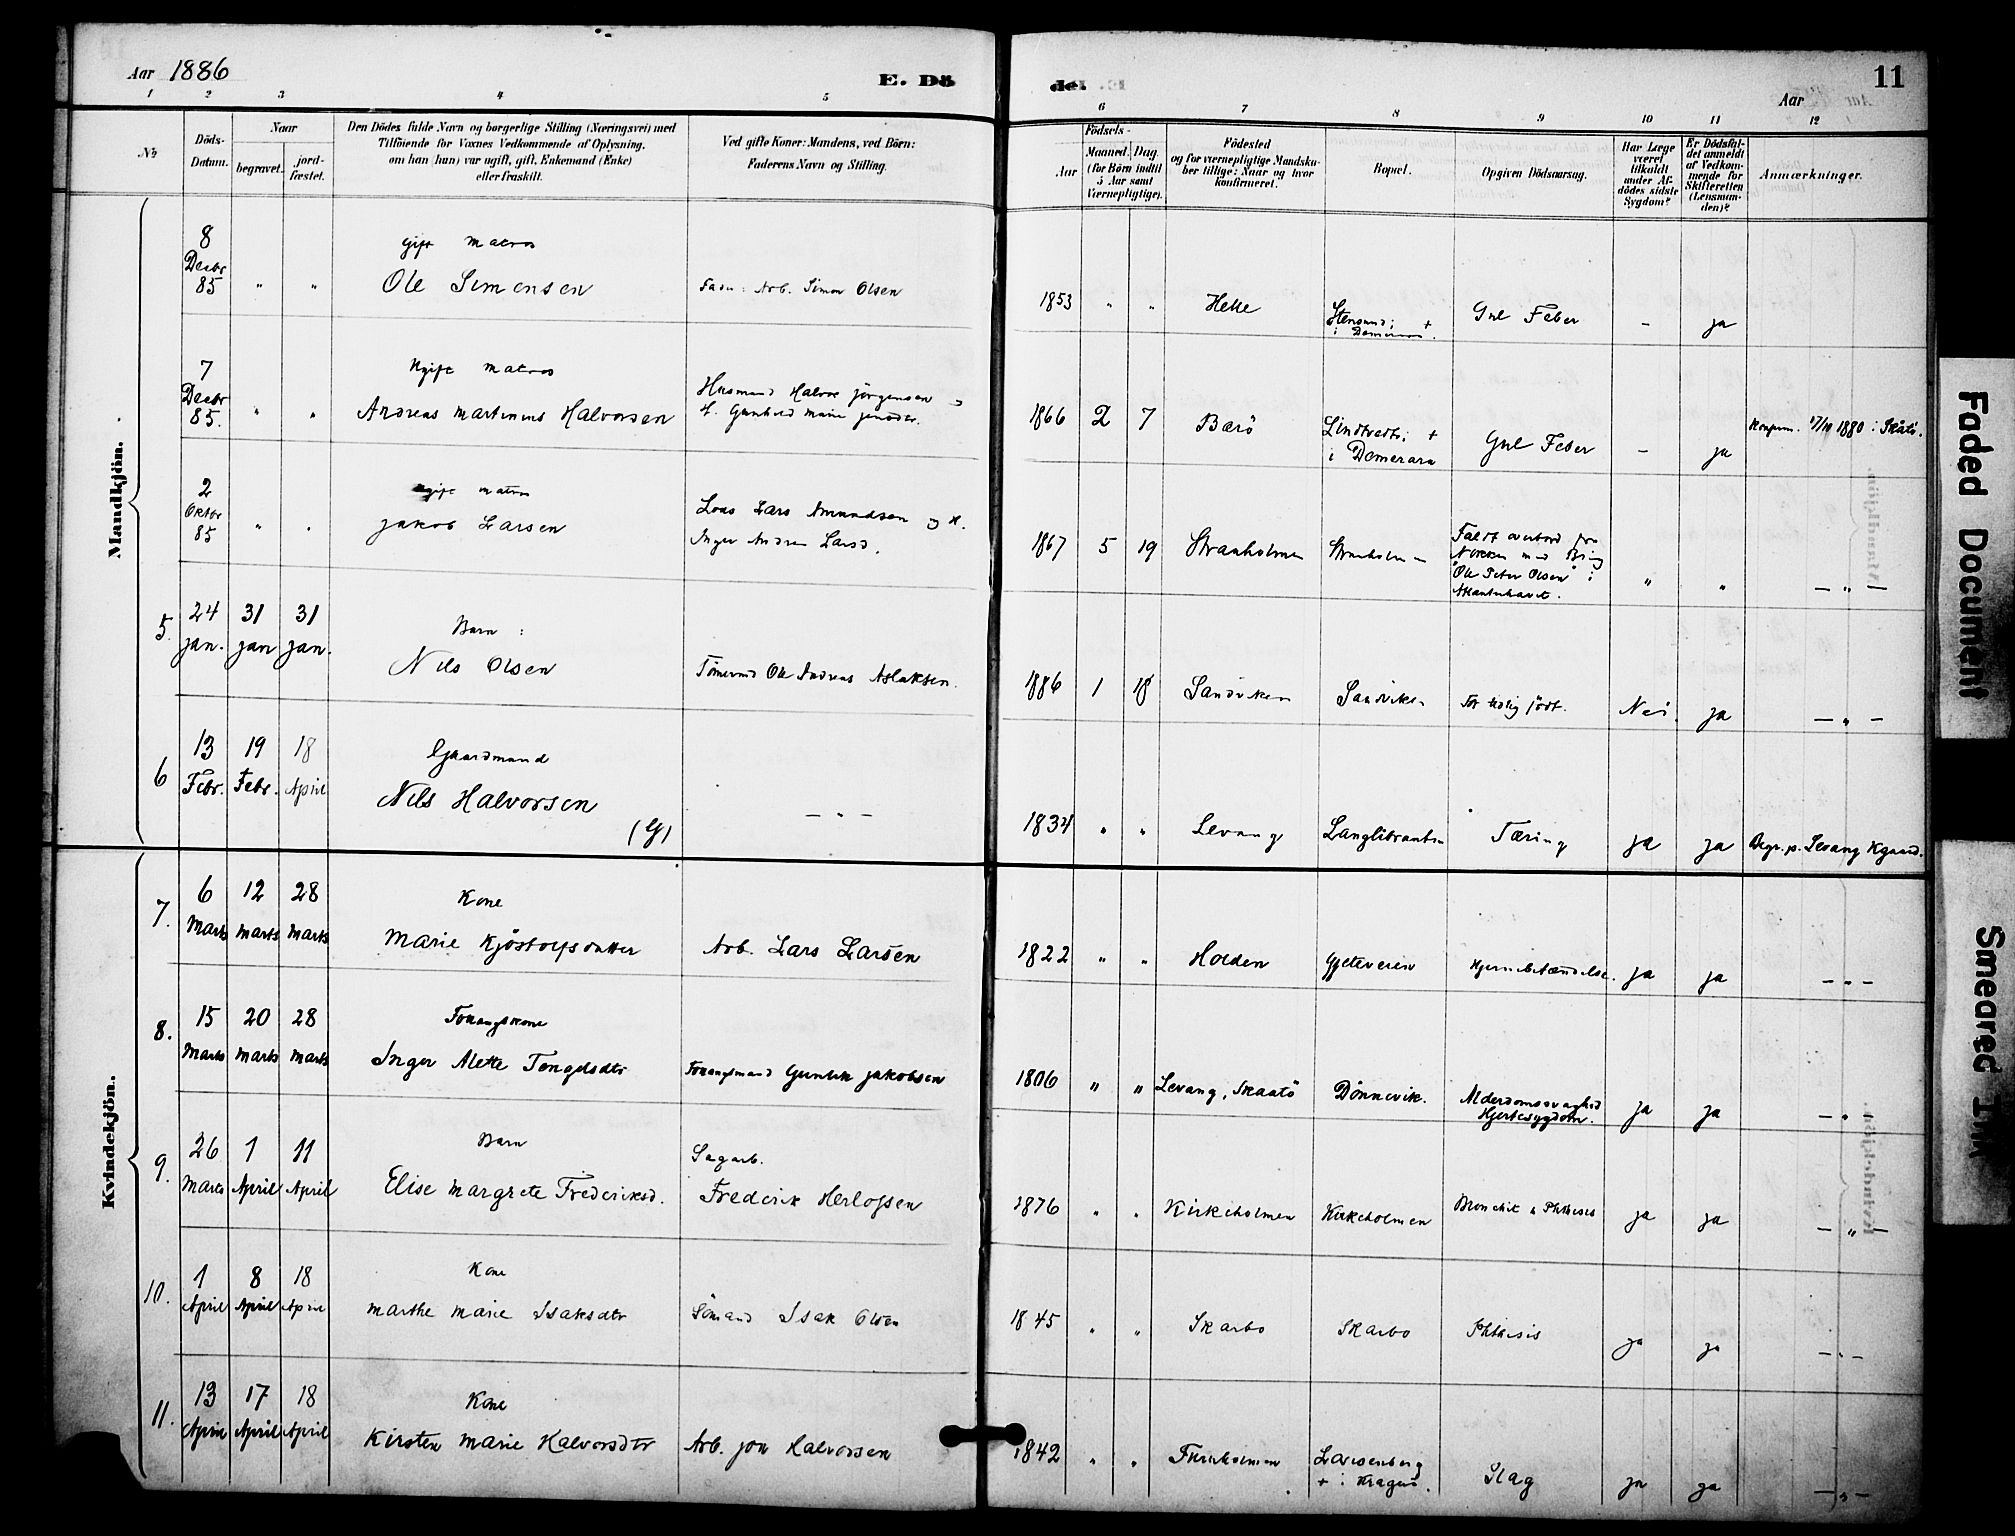 Aar 1886
E. Dö
1 2 3 4 5
No
Döds-
Datum.
Naar
begravet.
jord-
fæstet.
Den Dödes fulde Navn og borgerlige Stilling (Næringsvei) med
Tilföiende for Voxnes Vedkommende af Oplysning,
om han (hun) var ugift, gift, Enkemand (Enke)
eller fraskilt.
Ved gifte Koner: Mandens, ved Börn:
Faderens Navn og Stilling.
Mandkjön.
8
Decbr
85
"
"
gift Matros
Ole Simensen
Arb. Simon Olsen
7
Decbr
85.
"
"
Ugift Matros
Andreas Martinius Halvorsen
Husmand Halvor Jörgensen
2
Oktbr
85
"
"
Ugift Matros
Jakob Larsen
Lods Lars Amundsen og H.
Inger Andrea Larsd.
5.
24
Jan.
31
Jan
31
Jan.
Barn :
Nils Olsen
Ole Andreas Aslaksen.
6
13
Febr.
19
Febr.
18
April
Gaardmand
Nils Halvorsen
(G)
— " —
Kvindekjön.
7.
6
Marts
12
Marts
28
Marts
Kone
Marie Kjöstolfsdatter
Arb. Lars Larsen
8.
15
Marts
20
Marts
28
Marts
Inger Alette Tengelsdtr
Jakobsen
9.
26
Marts
1
April
11
April
Barn
Elise Margrete Frederiksd.
Sagarb.
Frederik Herlofsen
10.
1
April
8
April
18
April
Kone
Marthe Marie Isaksdtr
Sömand Isak Olsen
11.
13
April
17
April
18
April
Kone
Kirsten Marie Halvorsdtr
Arb. Jon Halvorsen
de.
11
Aar
6 7 8 9 10 11 12
Födsels-
Aar
Maaned.
Dag
(for Börn indtil
5 Aar samt
Værnepligtige).
Födested
og for værnepligtige Mandska-
ber tillige: Naar og hvor
konfirmeret.
Bopæl.
Opgiven Dödsaarsag.
Har Læge
været
tilkaldt
under Af-
dödes sidste
Sygdom?
Er Dödsfal-
det anmeldt
af Vedkom-
mende for
Skifteretten
(Lensman-
den)?
Anmærkninger.
1853
"
"
Helle
Gul Feber
–
ja
1866
2
7
Barö
i Demerara
Gul Feber
–
ja
1880 i Skåtö.
1867
5
19
Straaholmen
Straaholmen
Faldt overbord fra
Nokken med Brig
"Ole Peter Olsen" i
Atlanterhavet.
"
"
— " —
1886
1
18
Sandviken
Sandviken
For tidlig födt.
Nei.
ja
— " —
1834
"
"
Levang
Tæring
ja
ja
Begr. p. Levang Kgaard.
1822
"
"
Holden
Hjernebetændelse.
ja
ja
— " —
1806
"
"
Levang, Skaatö
Dönnevik.
Alderdomssvaghed
Hjertesygdom.
ja
ja
— "
1876
"
"
Kirkeholmen
Kirkeholmen
Bronchit & Phthisis
ja
ja
— " —
1845
"
"
Skarbo
Skarbo
Phthisis
ja
ja
— " —
1842
"
"
Furuholmen
+ i Kragerö.
Slag
ja
ja
— " —
Faded Document
Smeared Ink